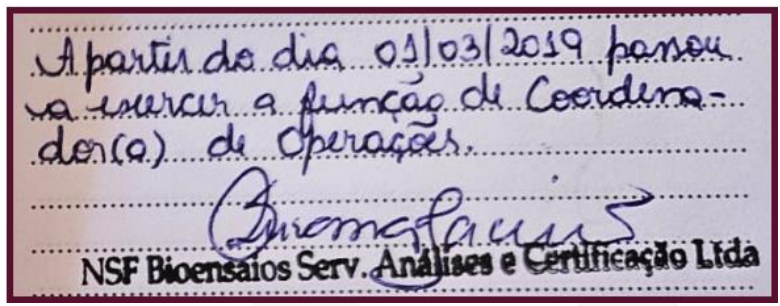 A partir do dia 01/03/2019 passou
a exercer a função de Coordena-
dor(a) de Operações.
NSF Bioensaios Serv. Análises e Certificação Ltda